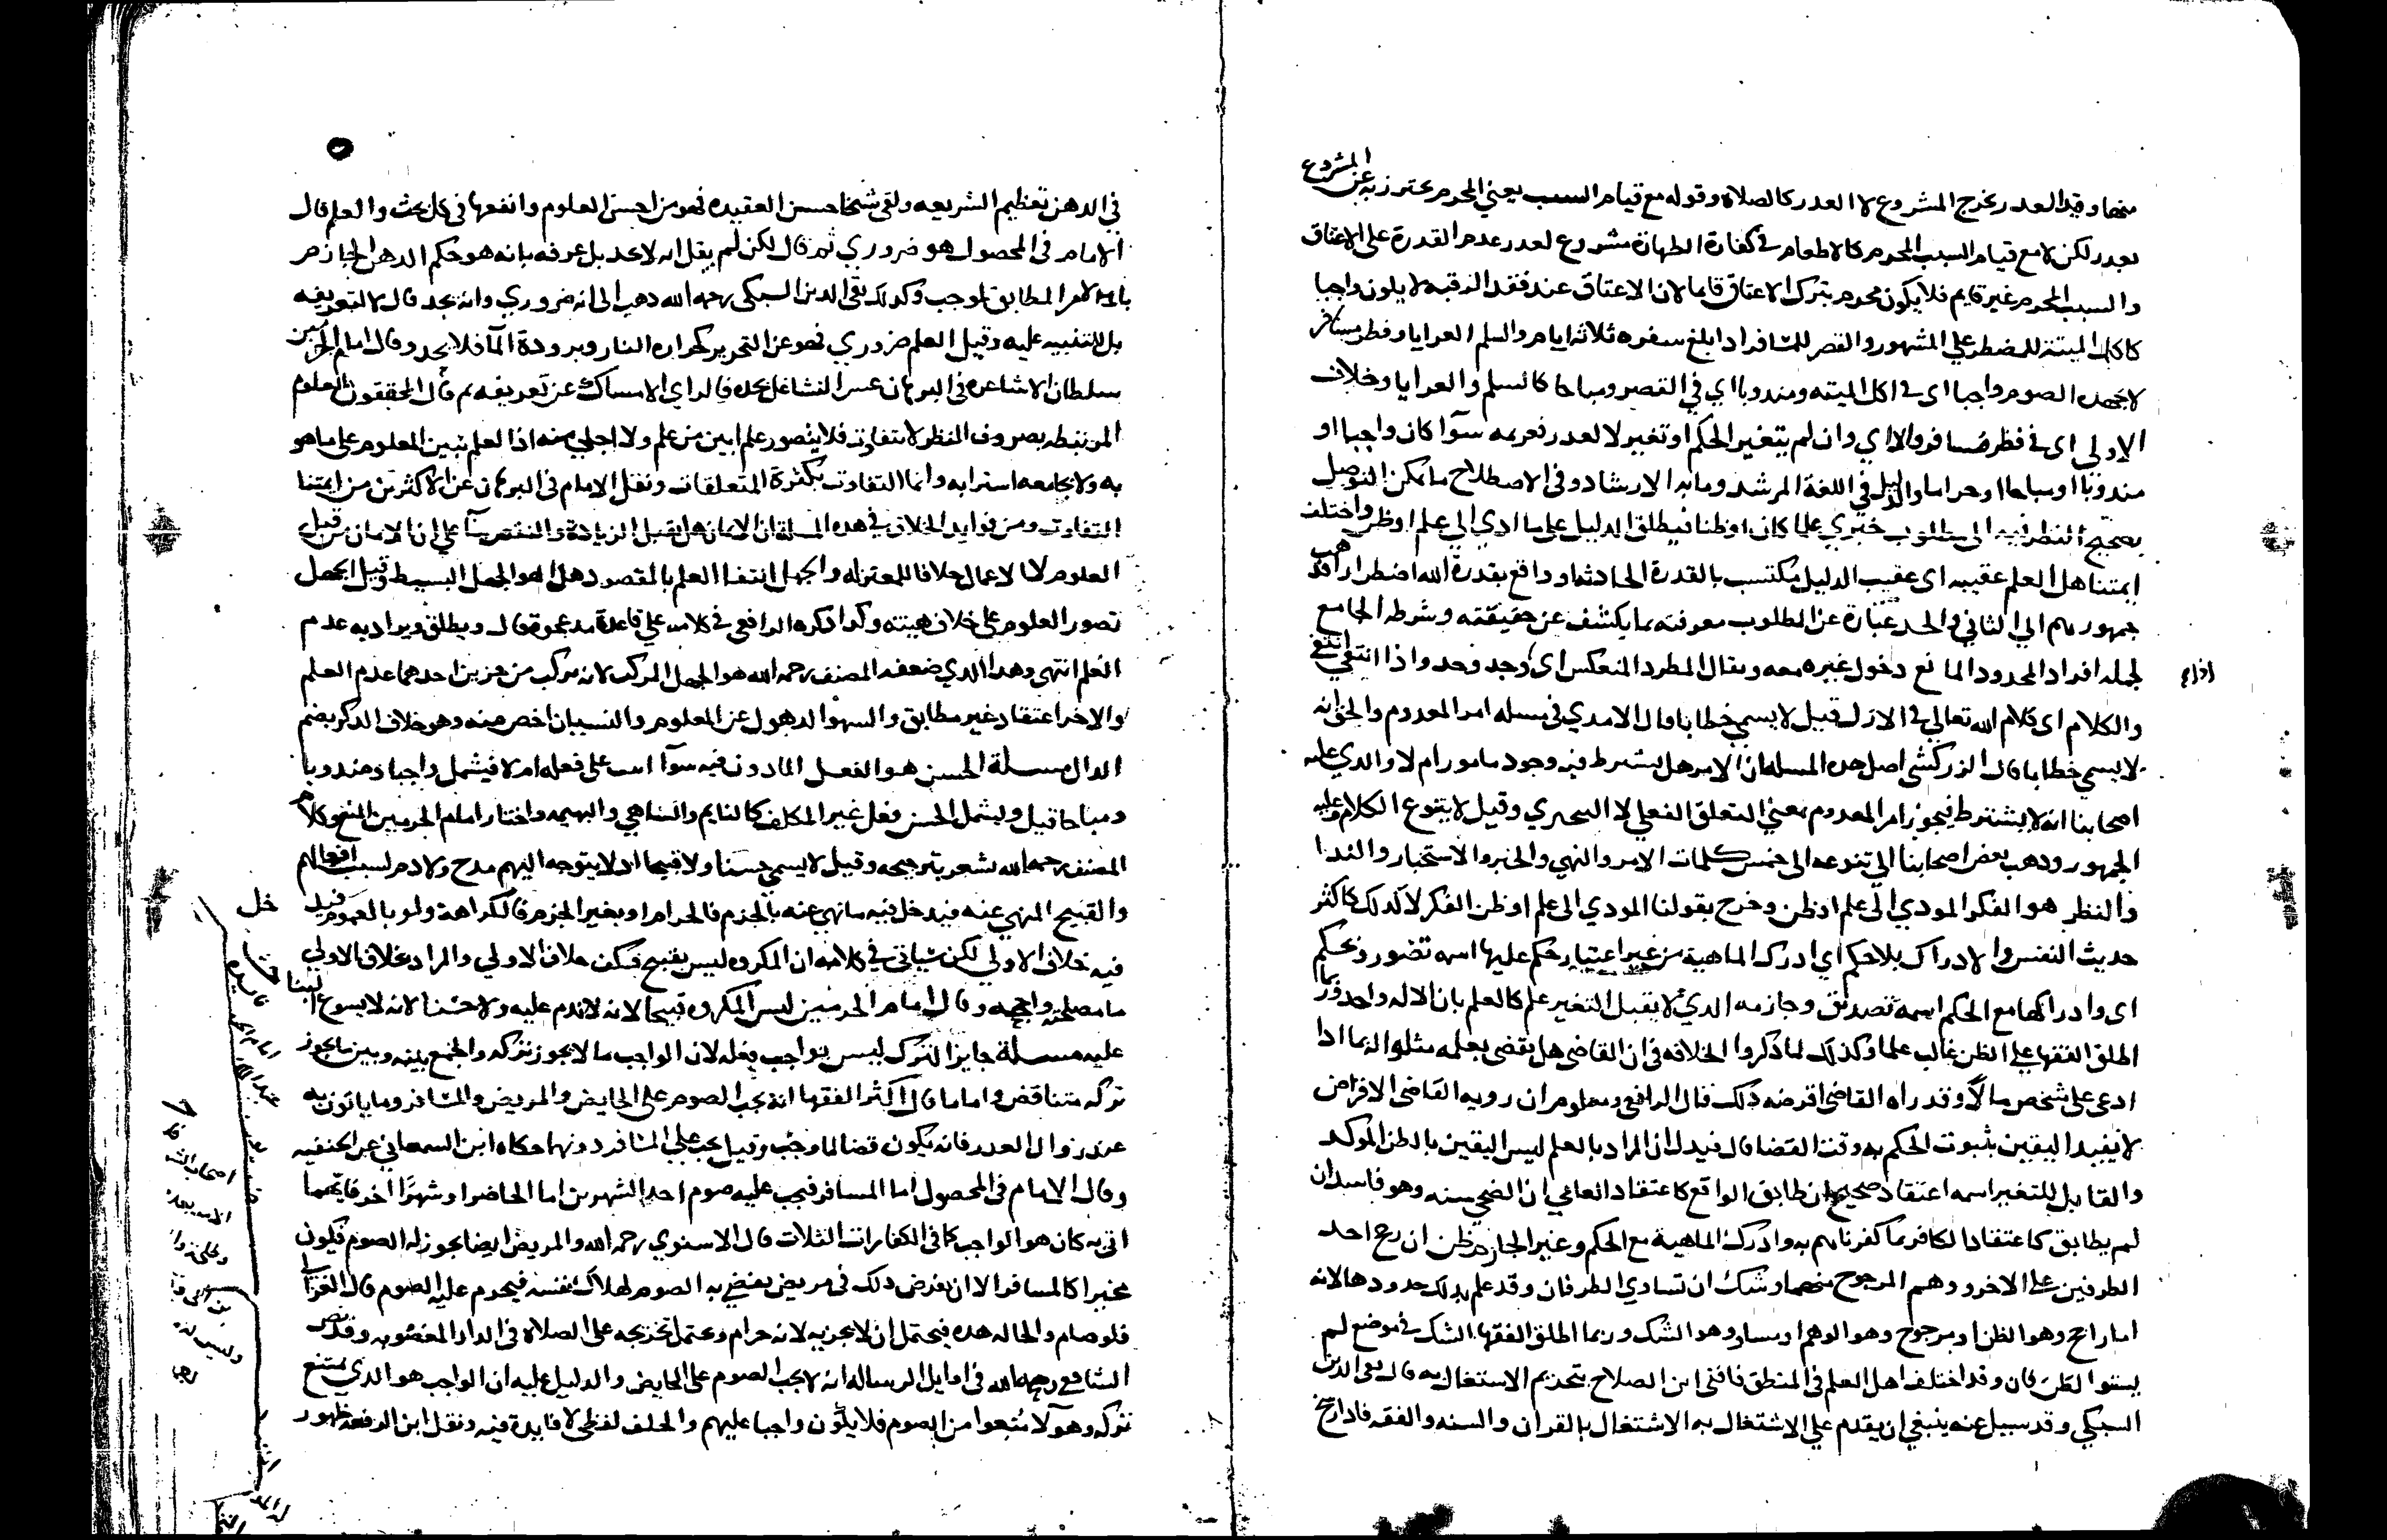 منها وقيد العدر يخرج المشروع لا العدر كالصلاه وقوله مع قيام السبب يعني المحرم يحترز به عن المشروع
بعدر لكن لا مع قيام السبب المحرم كالاطعام في كفارة الظهار فانه مشروع لعدر عدم القدرة على الاعتاق
والسبب المحرم غير قايم فلا يكون محرم بترك الاعتاق قايما لان الاعتاق عند فقد الرقبه لا يكون واجبا
كاكل الميتة للمضطر علي المشهور والقصر للمسافر ادا بلغ سفره ثلاثه ايام والسلم العرايا وفطر مسافر
لا يجهده الصوم واجبا اى في اكل الميته ومندوبا اي في القصر ومباحا كالسلم والعرايا وخلاف
الاولي اى في فطر مسافر والا اي وان لم يتغير الحكم او تغير لا لعدر فعزيمه سوآ كان واجبا او
مندوبا او مباحا او حراما والدليل في اللغة المرشد وما به الارشاد وفى الاصطلاح ما يمكن التوصل
بصحيح النظر فيه الى مطلوب خبري علما كان او ظنا فيطلق الدليل على ما ادي الي علم او ظن واختلف
ايمتنا هل العلم عقيبه اى عقيب الدليل مكتسب بالقدرة الحادثه او واقع بقدرة الله اضطرارا دهب
جمهورهم الي الثاني والحد عبارة عن المطلوب معرفته بما يكشف عن حقيقته وشرطه الجامع
لجمله افراد المحدود المانع دخول غيره معه ويقال المطرد المنعكس اى وجد وحد واذا انتفي انتفي
والكلام اى كلام الله تعالي في الازل قيل لا يسمي خطابا قال الامدي فى مسله امر المعدوم والحق انه
لا يسمي خطابا قال الزركشي اصل هده المسله ان الامر هل يشترط فيه وجود مامور ام لا والدي عليه
اصحابنا انه لا يشترط فيجوز امر المعدوم بمعني التعلق الفعلي لا التنجيزي وقيل لا يتنوع الكلام وعليه
الجمهور ودهب بعض اصحابنا الي تنوعه الى خمس كلمات الامر والنهي والخبر والاستخبار والندا
والنظر هو الفكر المودي الى علم او ظن وخرج بقولنا المودي الى علم او ظن الفكر لا لدلك كاكثر
حديث النفس والادراك بلا حكم اي ادرك الماهية من غير اعتبار حكم عليها اسمه تصور وبحكم
اى وادراكها مع الحكم اسمه تصديق وجازمه الدي لا يقبل التغير علم كالعلم بان الاله واحد وربما
اطلق الفقها علي الظن غالب علما وكذلك لما ذكروا الخلاف فى ان القاضي هل يقضي بعلمه مثلوا بما ادا
ادعى على شخص مالا وقد راه القاضي اقرضه ذلك قال الرافعي ومعلوم ان رويه القاضى الاقراض
لا يفيد اليقين بثبوت الحكم به وقت القضا قال فيدل ان المراد بالعلم ليس اليقين بل الظن الموكد
والقابل للتغير اسمه اعتقاد صحيح ان طابق الواقع كاعتقاد العامي ان الضحي سنه وهو فاسد ان
لم يطابق كاعتقاد الكافر بما كفرناهم به وادرك الماهية مع الحكم وغير الجازم ظن ان رجح احد
الطرفين علي الاخر ووهم المرجوح منهما وشك ان تساوي الطرفان وقد علم بدلك حدودها لانه
اما راجح وهو الظن او مرجوح وهو الوهم او مساو وهو الشك وربما اطلق الفقها الشك في موضع لم
يستو الطرفان وقد اختلف اهل العلم فى المنطق فافتى ابن الصلاح بتحريم الاشتغال به قال تقى الدين
السبكي وقد سيل عنه ينبغي ان يقدم علي الاشتغال به الاشتغال بالقران والسنه والفقه فادا رسخ
في الدهن تعظيم الشريعه ولقى شيخا حسن العقيده فهو من احسن العلوم وانفعها فى كل بحث والعلم قال
الامام فى المحصول هو ضروري ثم قال لكن لم يقل انه لا يحد بل عرفه بانه هو حكم الدهن الجازم
بالامر المطابق لموجب وكدلك تقي الدين السبكى رحمه الله دهب الى انه ضروري وانه يحد قال لا لتعريفه
بل للتنبيه عليه وقيل العلم ضروري فهو غنى التحرير كحراره النار وبرودة المآ فلا يحد وقال امام الحرمين
سلطان الاشاعره فى البرهان عسر التشاغل بحده فالراى الامساك عن تعريفه ثم قال المحققون العلوم
المرتبطه بصروف النظر لا تتفاوت فلا يتصور علم ابين من علم ولا اجلي منه اذ العلم تبين المعلوم على ما هو
به ولا يجامعه استرابه وانما التفاوت بكثرة المتعلقات ونقل الامام فى البرهان عن الاكثرين من ايمتنا
التفاوت ومن فوايد الخلاف في هده المسلة ان الايمان هل يقبل الزيادة والنقص بنآ علي ان الايمان من قبيل
العلوم لا الاعمال خلافا للمعتزله والجهل انتفا العلم بالمقصود هدا هو الجهل البسيط وقيل الجهل
تصور المعلوم على خلاف هيئته وكدا دكره الرافعي في كلامه علي قاعدة مد عجوة قال ويطلق ويراد به عدم
العلم انتهى وهدا الدي ضعفه المصنف رحمه الله هو الجهل المركب لانه مركب من جزين احدهما عدم العلم
والاخر اعتقاد غير مطابق والسهو الدهول عن المعلوم والنسيان اخص منه وهو خلاف الدكر بضم
الدال مسلة الحسن هو الفعل المادون فيه سوآ اثيب على فعله ام لا فيشمل واجبا ومندوبا
ومباحا قيل ويشمل الحسن فعل غير المكلف كالنايم والساهي والبهيمه واختار امام الحرمين المنع وكلام
المصنف رحمه الله يشعر بترجيحه وقيل لا يسمي حسنا ولا قبيحا اد لا يتوجه اليهم مدح ولا دم لسبب افعالهم
والقبيح المنهي عنه فيدخل فيه ما نهي عنه بالجزم فالحرام او بغير الجزم فالكراهة ولو بالعموم فيدخل
فيه خلاف الاولي لكن سياتى في كلامه ان المكروه ليس بقبيح فيكن خلاف الاولي والمراد بخلاف الاولي
ما مصلحته راجحه وقال امام الحرمين ليس المكروه قبيحا لانه لا يدم عليه ولا حسنا لانه لا يسوغ الثنا
عليه مسلة جايز الترك ليس بواجب فعله لان الواجب ما لا يجوز تركه والجمع بينه وبين ما يجوز
تركه متناقض واما ما قال اكثر الفقها انه يجب الصوم على الحايض والمريض والمسافر وما ياتون به
عند زوال العدر فانه يكون قضا لما وجب وقيل يجب علي المسافر دونهما حكاه ابن السمعاني عن الحنفيه
وقال الامام فى المحصول اما المسافر فيجب عليه صوم احد الشهرين اما الحاضر او شهرا اخر فايهما
اتى به كان هو الواجب كما فى الكفارات الثلاث قال الاسنوي رحمه الله والمريض ايضا يجوز له الصوم فيكون
مخيرا كالمسافر الا ان يفرض دلك فى مريض يفضي به الصوم لهلاك نفسه فيحرم عليه الصوم قال الغزالى
فلو صام والحاله هده فيحتمل ان لا يجزيه لانه حرام ويحتمل تخريجه على الصلاة فى الدار المغصوبه وقد نص
الشافعي رحمه الله فى اوايل الرساله انه لا يجب الصوم على الحايض والدليل عليه ان الواجب هو الدي يمتنع
تركه وهولا منعوا من الصوم فلا يكون واجبا عليهم والخلف لفظي لا فايدة فيه ونقل ابن الرفعه ظهور